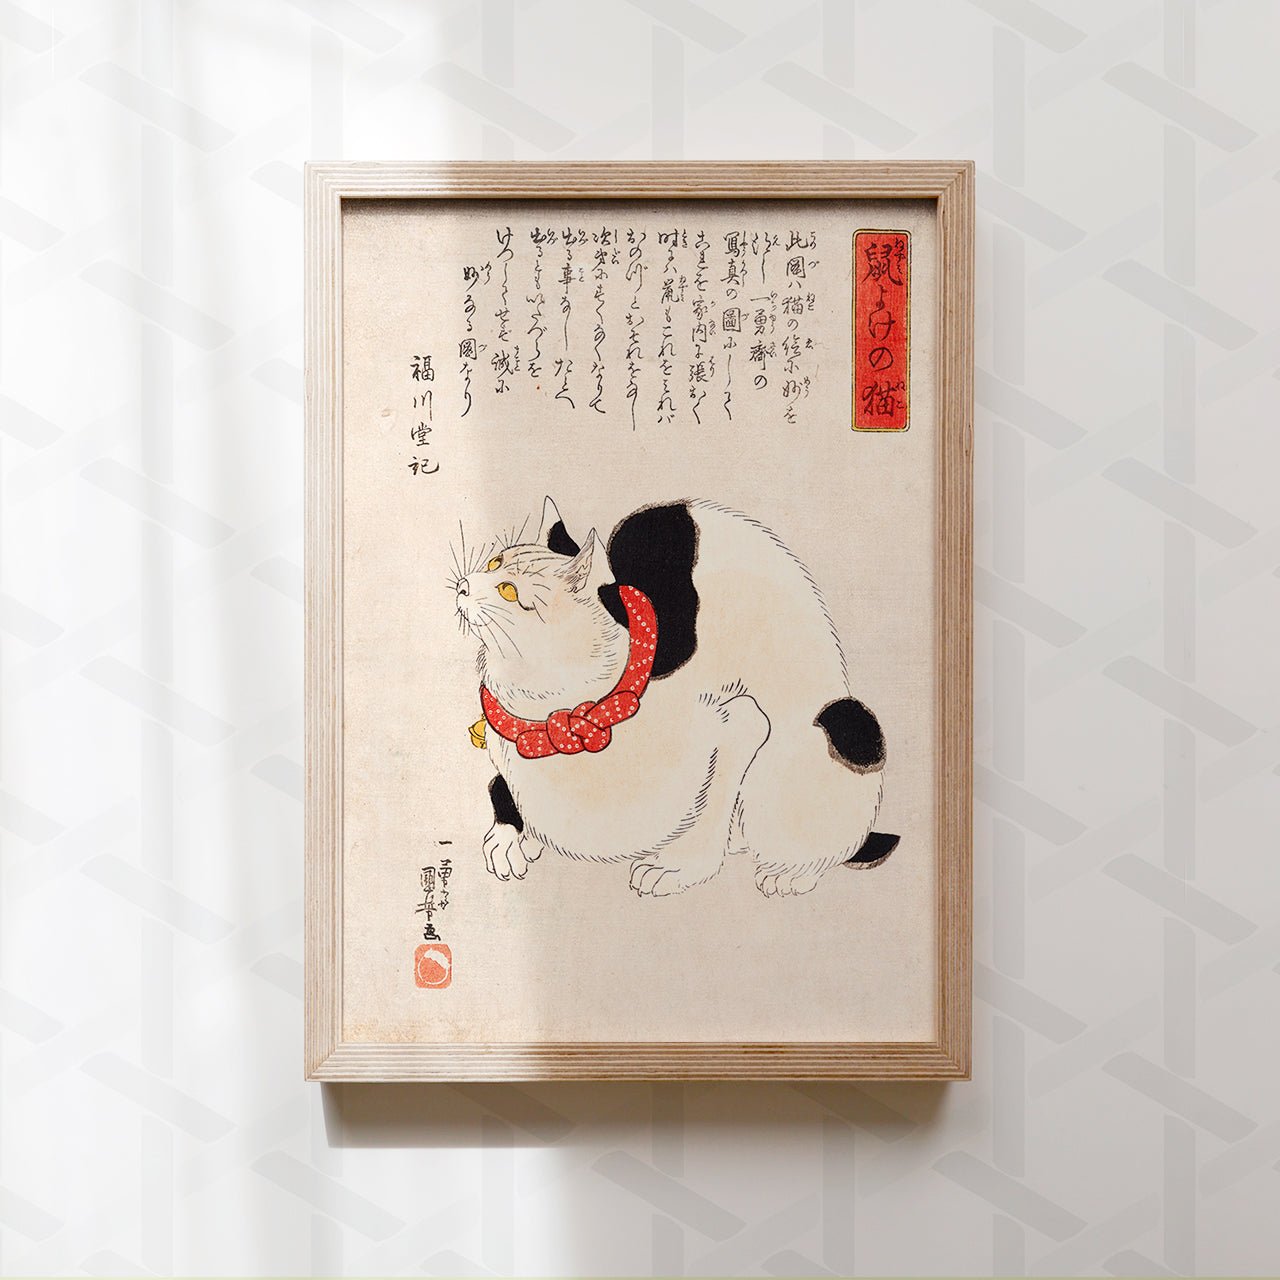 鼠よけの猫
此図ハ猫の絵に妙を
得し一勇齋の
写真の図にして
これを家内に張おく
時にハ鼠もこれをみれバ
おのづとおそれをなし
次第にすくなくなりて
出る事なしたとへ
出るともいたづらを
けつしてせず誠に
妙なる図なり
福川堂記
一勇斎
国芳画